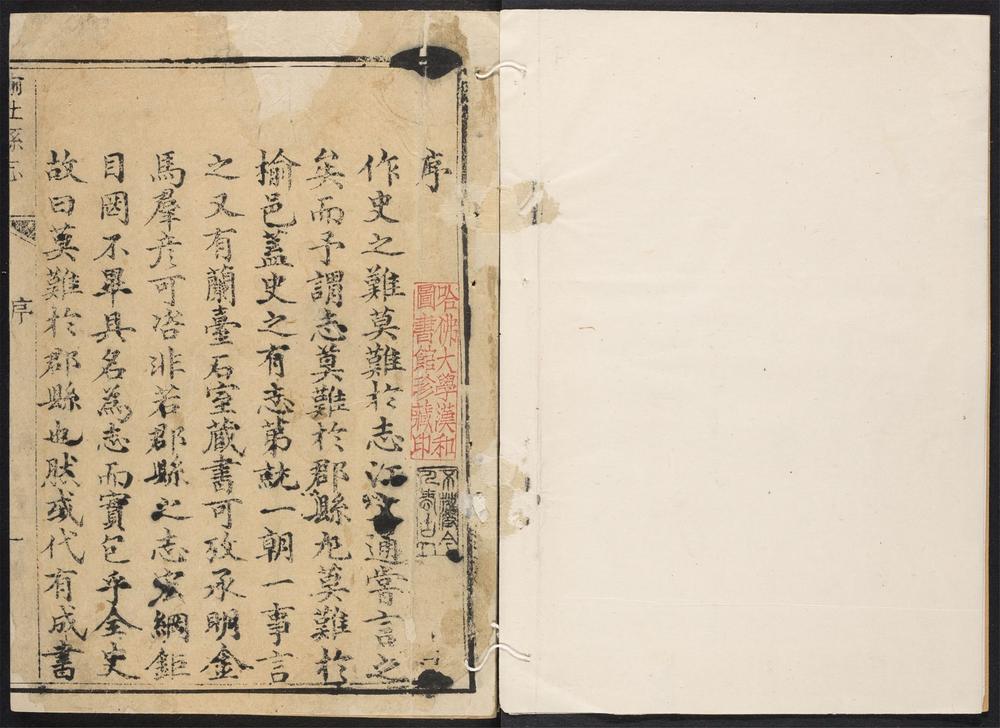 序
哈佛大學漢和
圖書館珍藏印
作史之難莫難於志江文通嘗言之
矣而予謂志莫難於郡縣尤莫難於
揄邑蓋史之有志第就一朝一事言
之又有蘭臺石室藏書可攷承明金
馬羣彥可咨非若郡縣之志宏綱鉅
目罔不畢具名為志而實包乎全史
故曰莫難於郡縣也肰或代有成書
社縣志
序
一